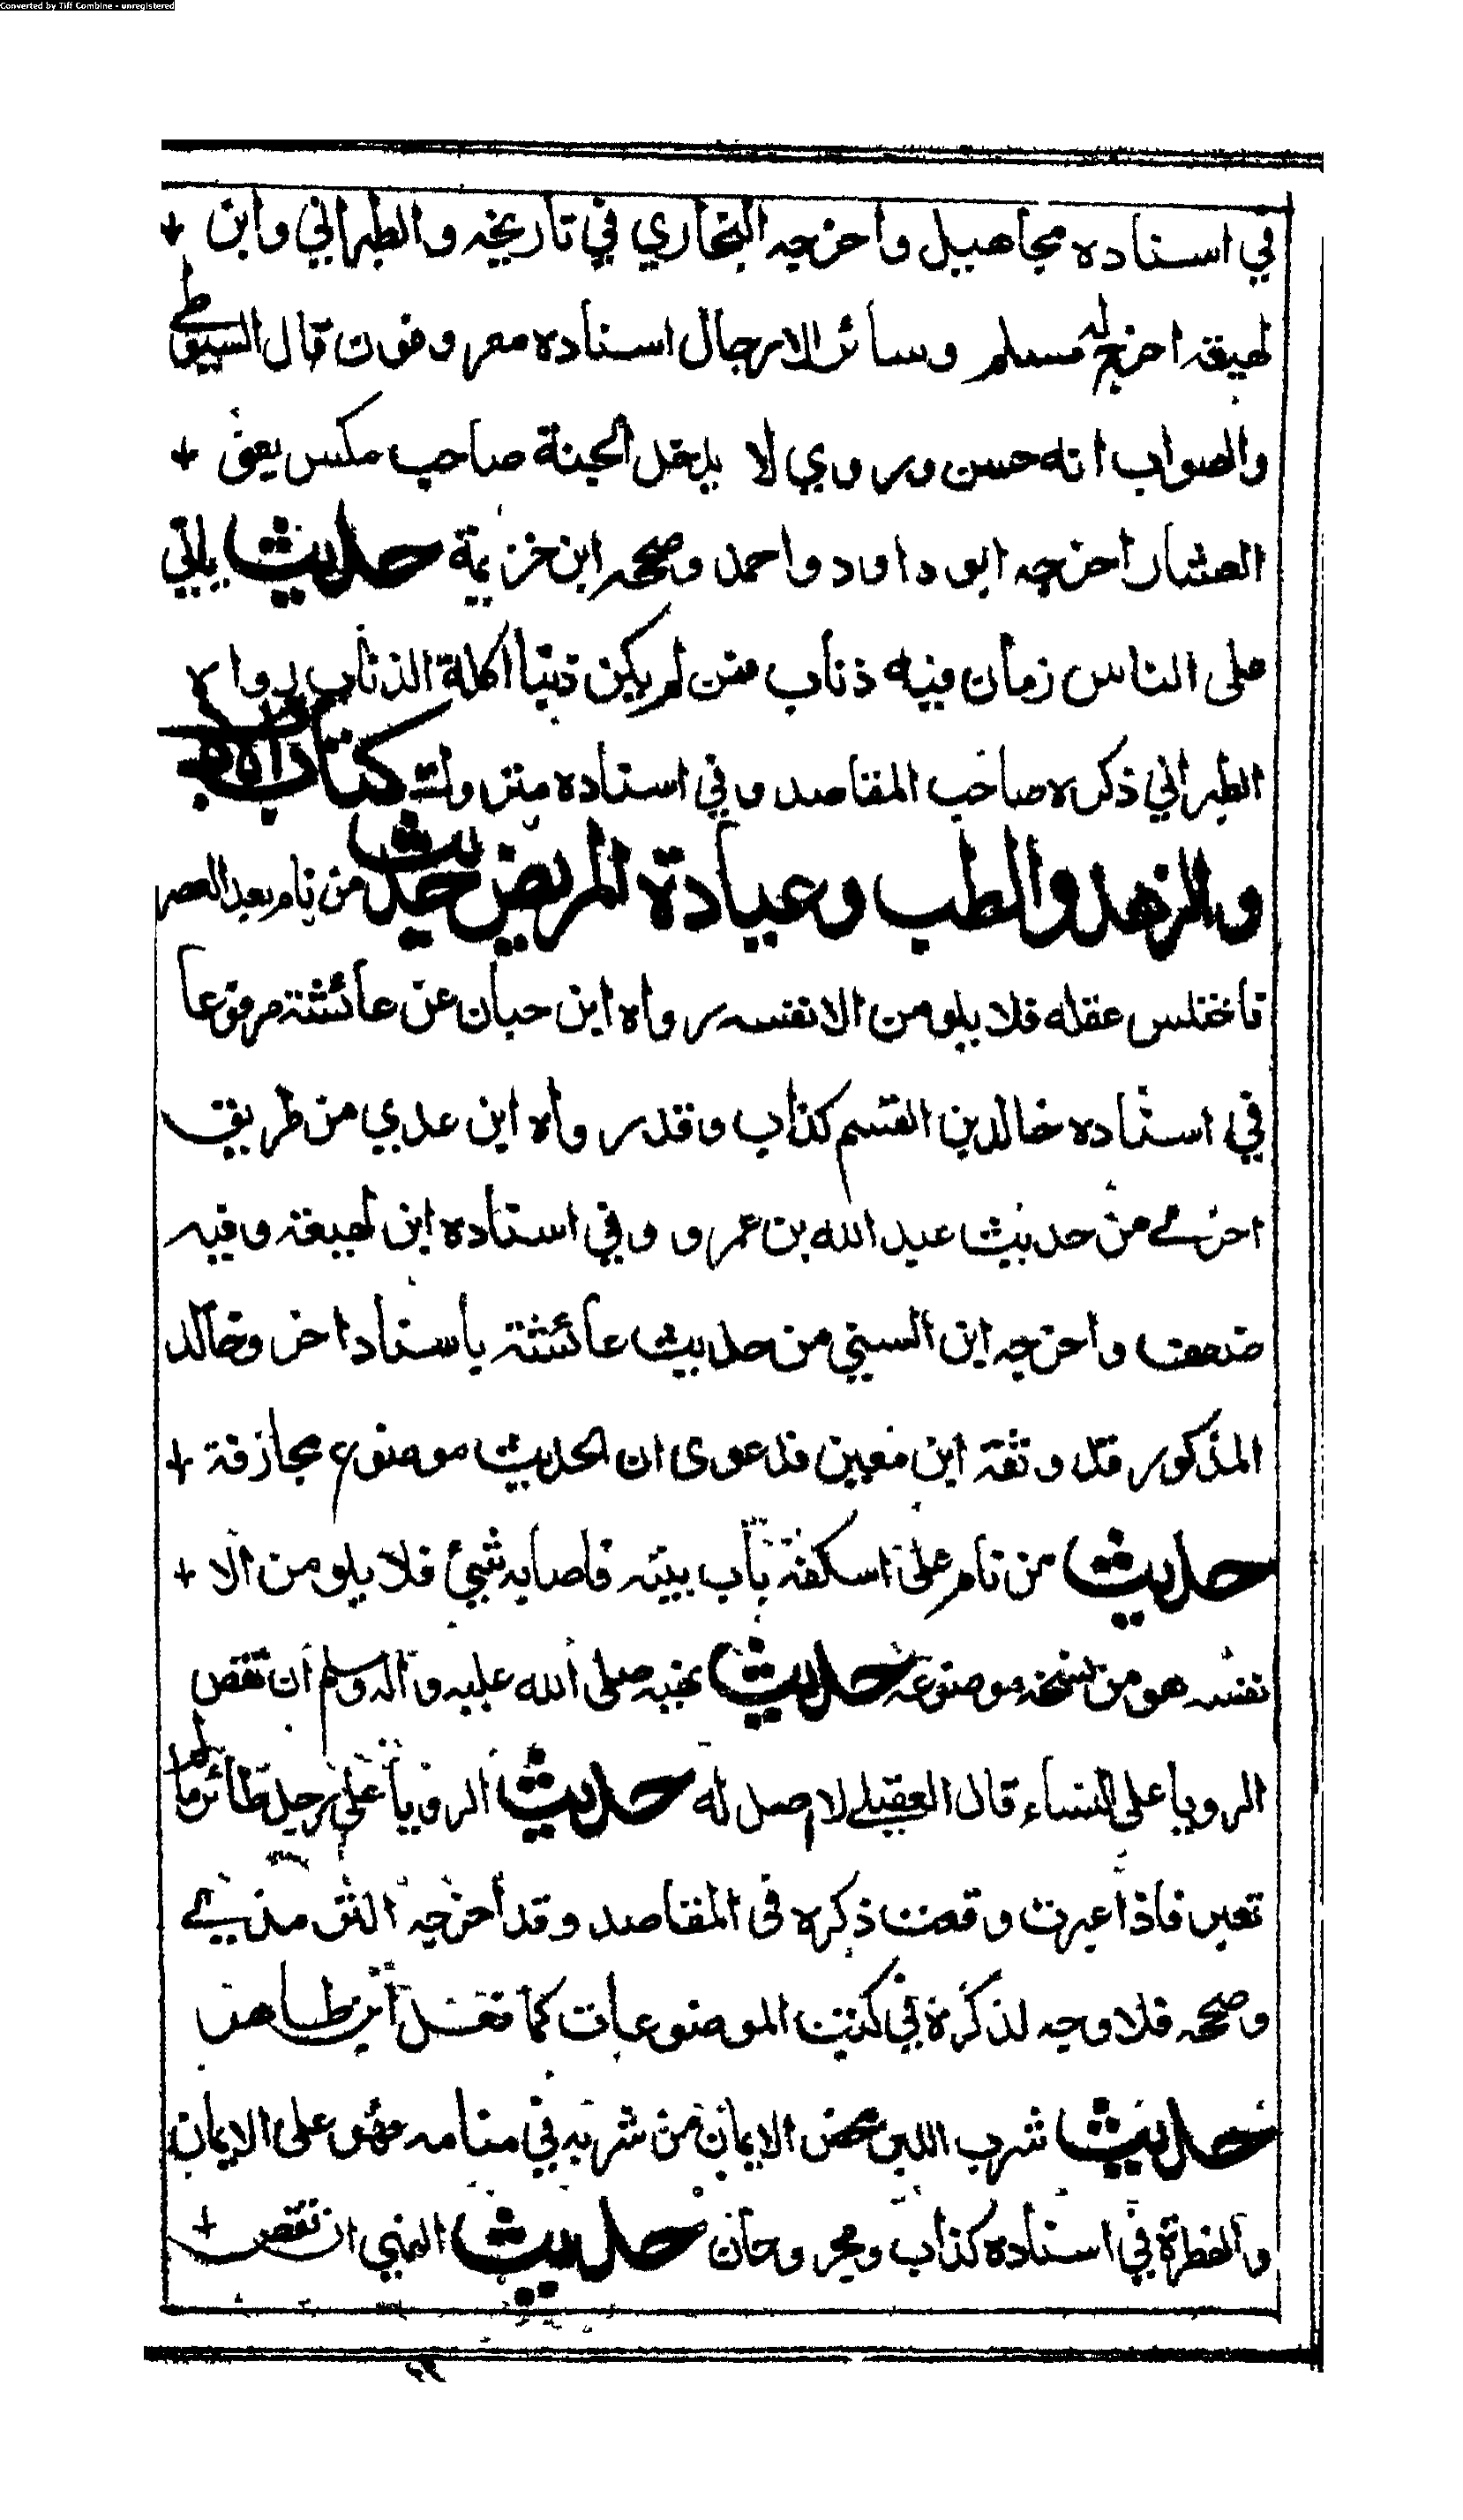 Converted by Tiff Combine - unregistered
في اسناده مجاهيل واخرجه البخاري في تاريخه والطبراني وابن
لهيعة اخرج له مسلم وسائر الا رجال اسناده معروفون قال السيوطي
والصواب انه حسن وروي لا يدخل الجنة صاحب مكس يعني
العشار اخرجه ابو داود واحمد وصححه ابن خزيمة حديث ياتي
على الناس زمان فيه ذئاب فمن لم يكن ذئبا اكلة الذئاب رواه
الطبراني ذكره صاحب المقاصد وفي اسناده متروك كتاب
والزهد والطب وعيادة المريض حديث من نام بعد العصر
فاختلس عقله فلا يلومن الا نفسه رواه ابن حبان عن عائشة مرفوعا
في اسناده خالد بن القسم كذاب وقد رواه ابن عدي من طريق
اخرى من حديث عبد الله بن عمرو وفي اسناده ابن لهيعة وفيه
ضعف واخرجه ابن السني من حديث عائشة باسناد اخر وخالد
المذكور قد وثقة ابن معين فدعوى ان الحديث موضوع مجازفة
حديث من نام على اسكفة باب بيته فاصابه شيئ فلا يلومن الا
نفسه هو من نسخة موضوعة حديث نهيه صلى الله عليه وآله وسلم ان تقص
الرويا على النساء قال العقيلي لا اصل له حديث الرويا على رجل طائر ما لم
تعبر فاذا عبرت وقعت ذكره فى المقاصد وقد اخرجه الترمذي
وصححه فلا وجه لذكرة في كتب الموضوعات كما فعل ابن طاهر
حديث شرب اللبن محض الايمان من شربه في منامه فهو على الايمان
والفطرة في اسناده كذاب ومجروحان حديث النهي ان تقص